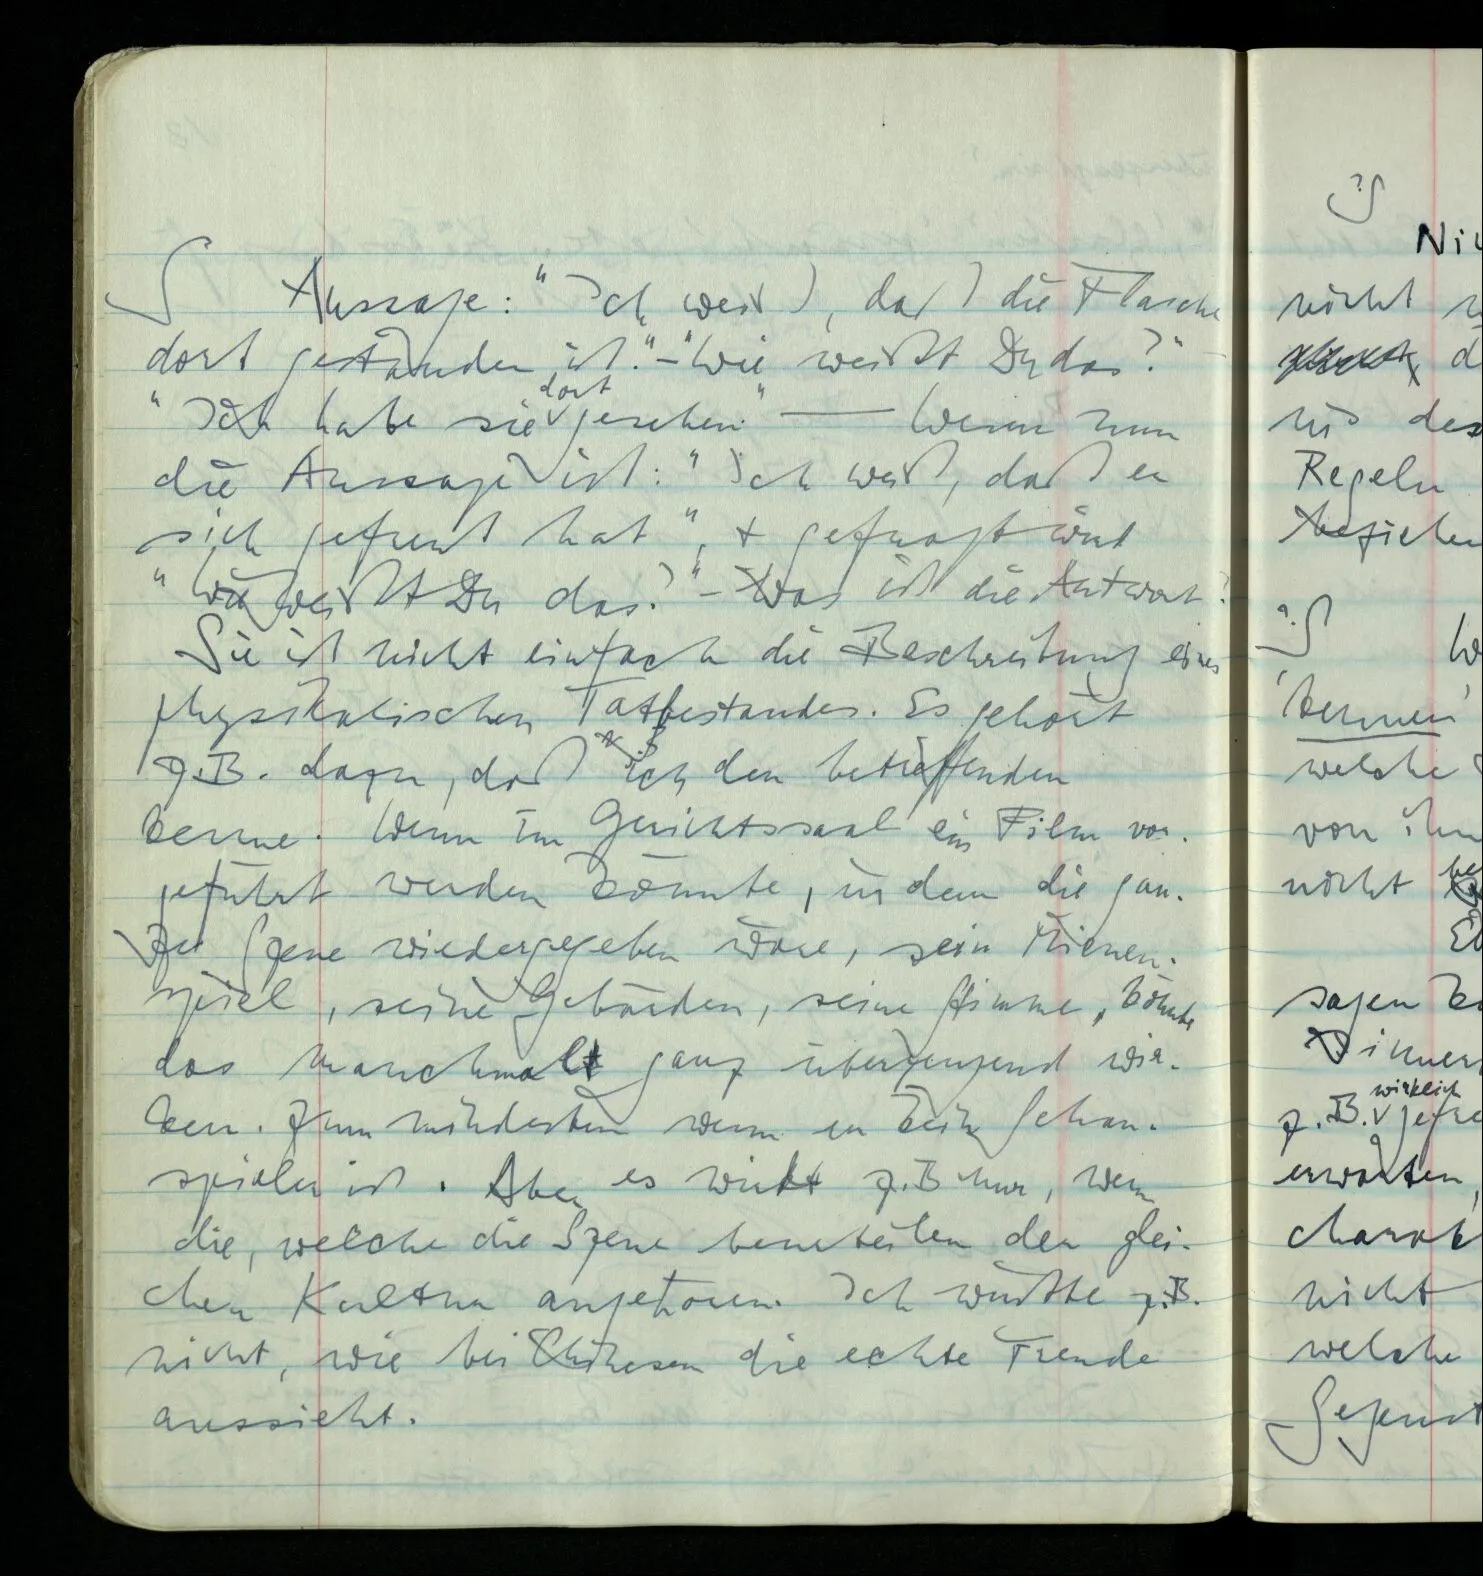 ∫ Aussage: "Ich weiß, daß die Flasche
dort gestanden ist." – "Wie weißt Du das?"
"Ich habe sie dort gesehen." — Wenn nun
die Aussage ist: "Ich weiß, daß er
sich gefreut hat", + gefragt wird
"Wie weißt Du das?" – Was ist die Antwort?
Sie ist nicht einfach die Beschreibung eines
physikalischen Tatbestandes. Es gehört
z.B. dazu, daß ich den betreffenden
kenne. Wenn im Gerichtssaal ein Film vor-
geführt werden könnte, in dem die gan-
ze Szene wiedergegeben wäre, sein Mienen-
spiel, seine Gebärden, seine Stimme, könnte
das manchmal ganz überzeugend wir-
ken. Zum mindesten wenn er kein Schau-
spieler ist. Aber es wirkt z.B. nur, wenn
die, welche die Szene beurteilen der glei-
chen Kultur angehören. Ich wüßte z.B.
nicht, wie bei Chinesen die echte Freude
aussieht.
?∫
nicht
d
des
Regeln
beziehen
?∫ W
'kennen'
welche
von ihm
nicht
sagen
z.B. wirklich
erwarten,
charak
nicht
welche
Gegenst